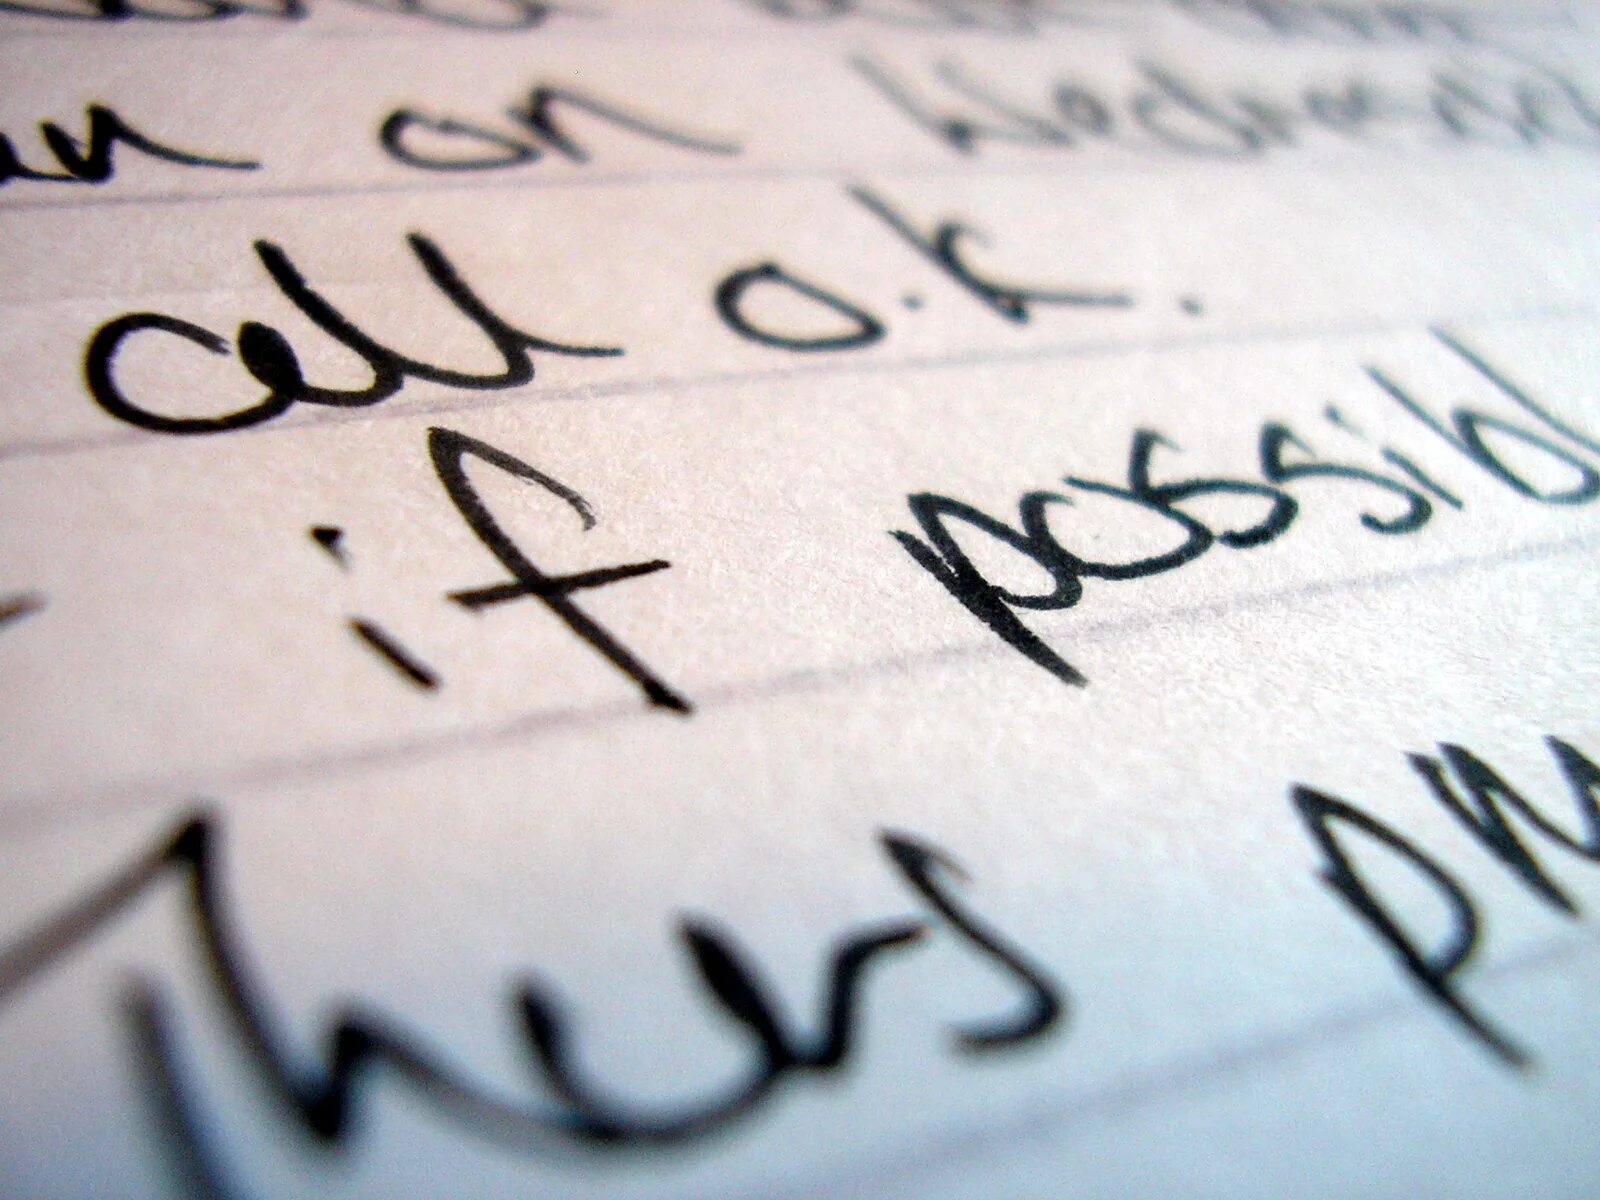 on Wednesd
all o.k.
if possibl
Thurs pm